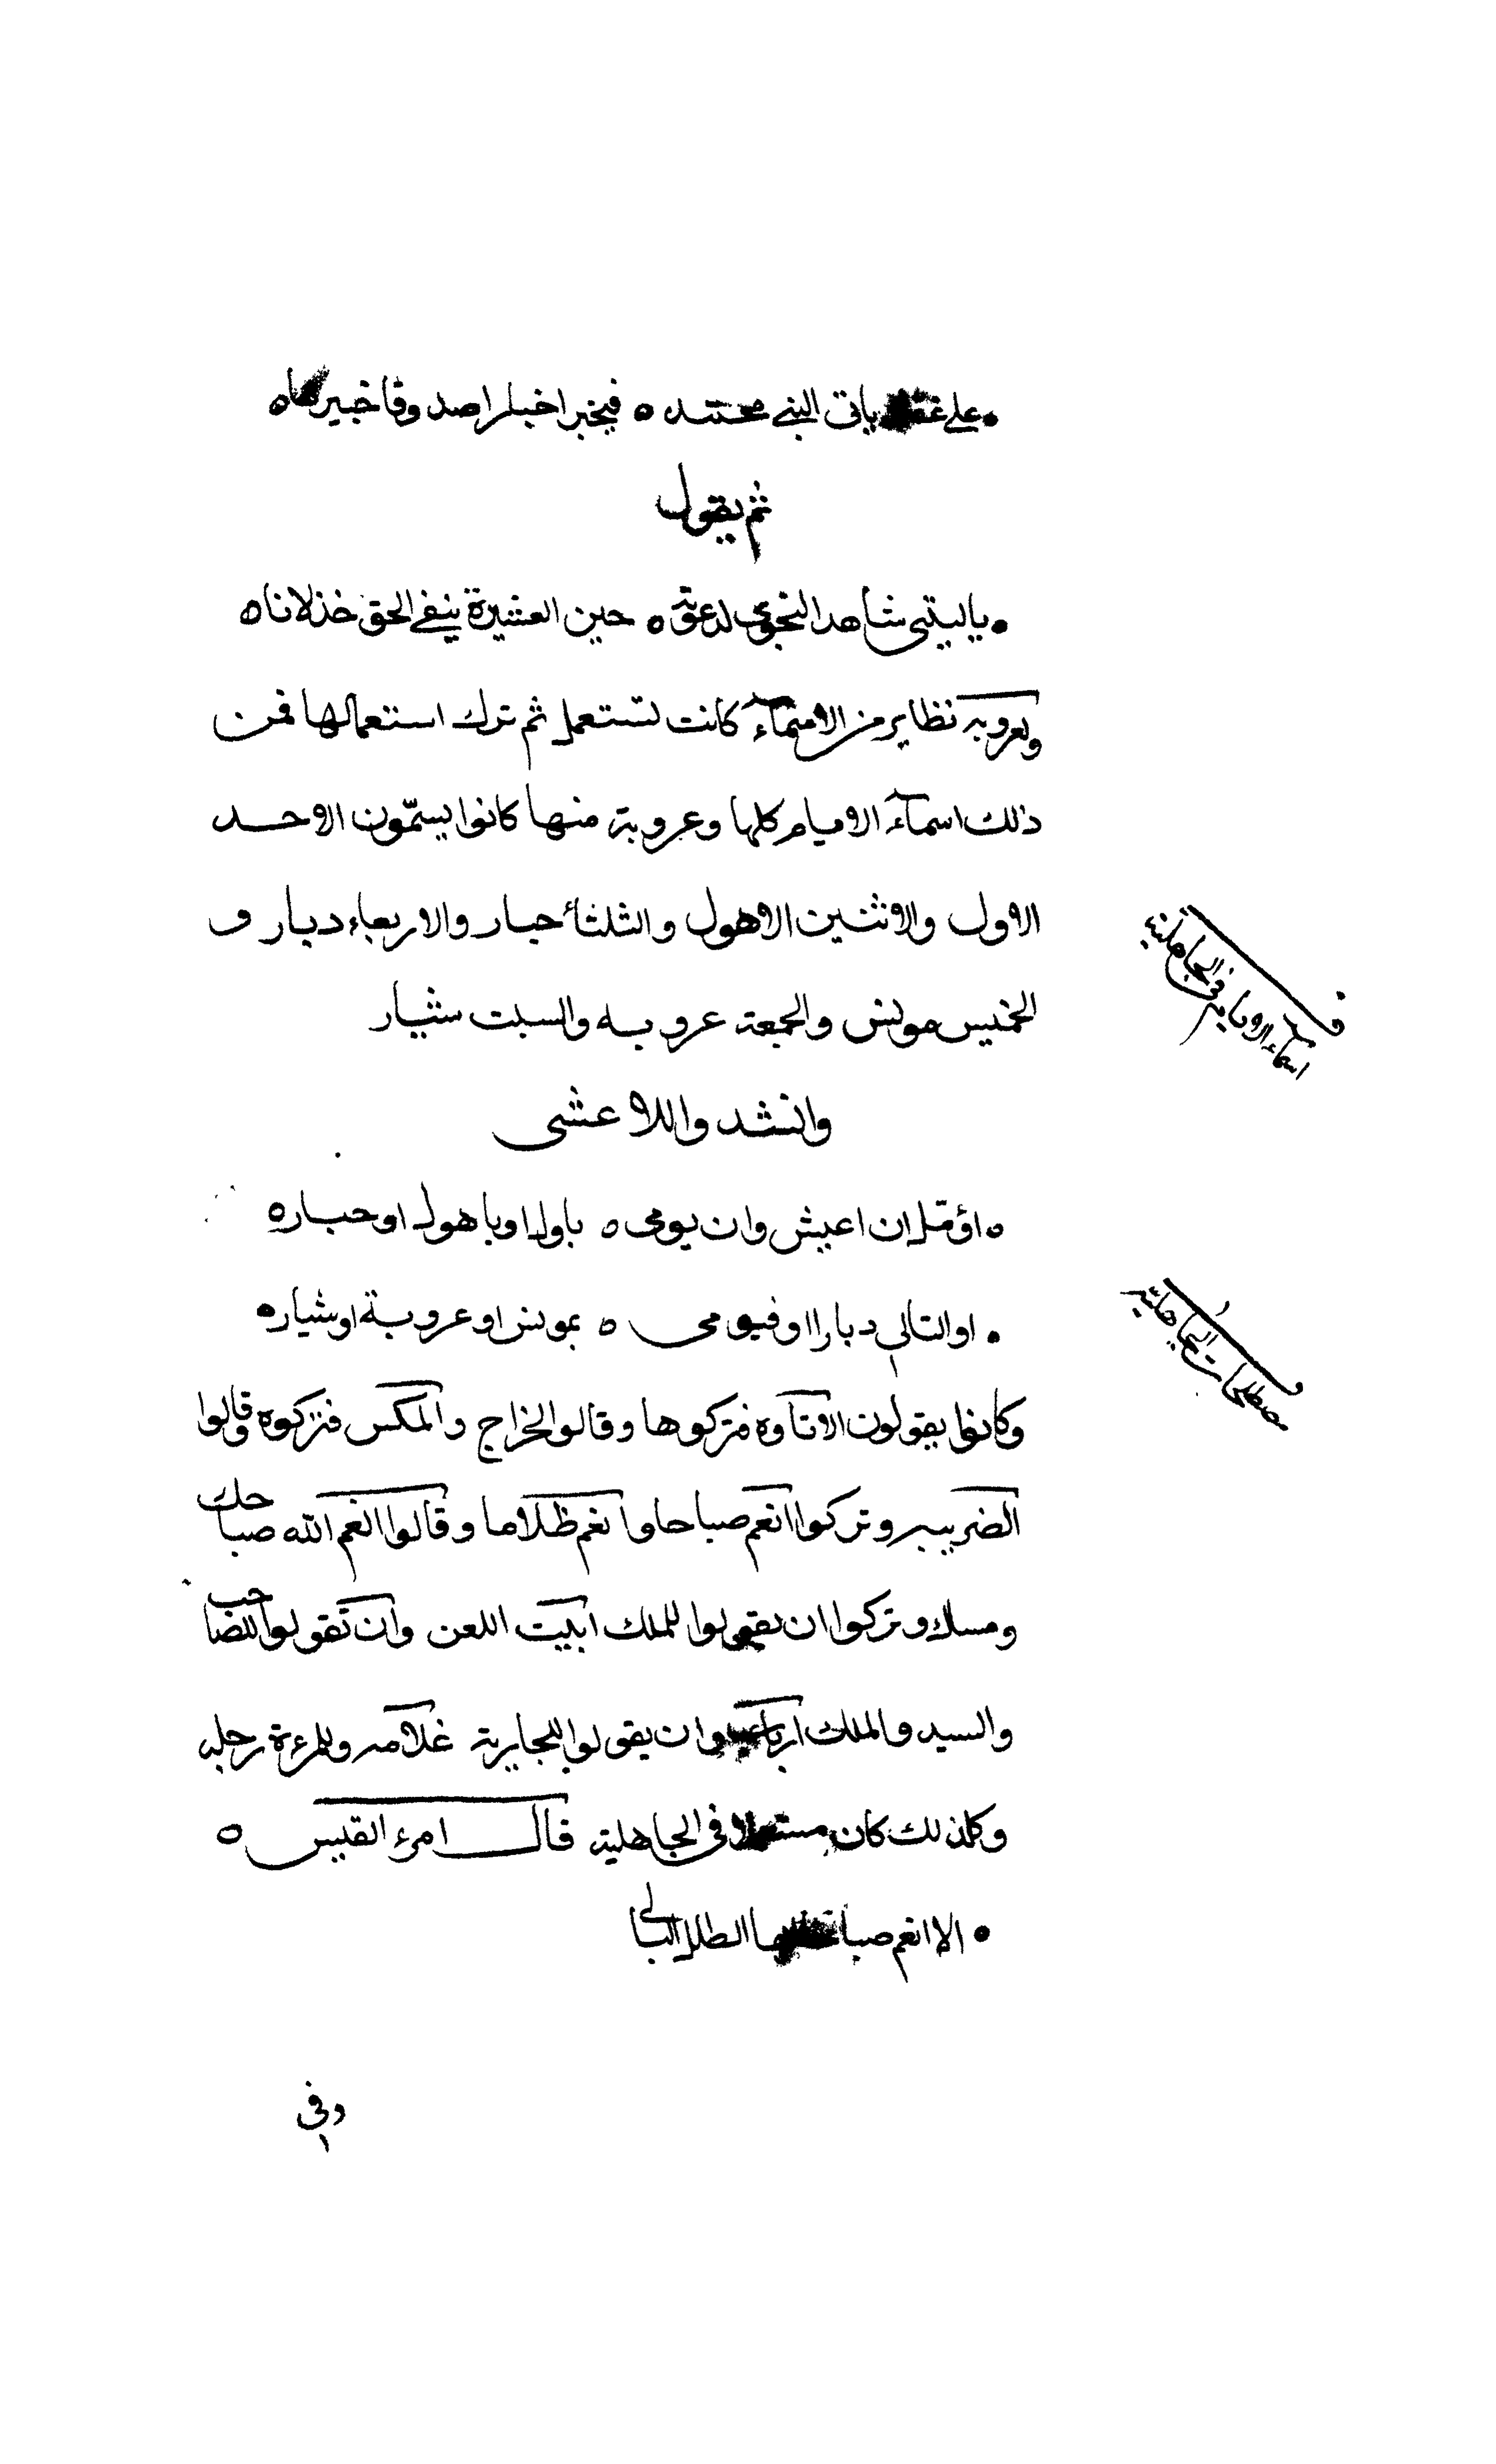 على ياتى النبى محمد ه فيخبر اخبارا صدوقا خبيرها ه
ثم يقول
ياليتنى شاهد النجوى لدعوته ه حين العشيرة ينفى الحق خذلانا ه
ولعروبه نظاير من الاسماء كانت تستعمل ثم ترك استعمالها فمن
ذلك اسماء الايام كلها وعروبة منها كانوا يسمّون الاحد
الاول والاثنين الاهول والثلثاء جبار والاربعاء دبار و
الخميس مونس والجمعة عروبه والسبت شيار
اسماء الايام فى الجاهلية
وانشدوا للاعشى
اؤمل ان اعيش وان يومى ه باول او باهول او جبار ه
او التالى دبارا او فيومى ه بمونس او عروبة او شيار ه
مصطلحات الجاهلية
وكانوا يقولون الاتاوه فتركوها وقالوا الخراج والمكس فتركوه وقالوا
الضريبه وتركوا انعم صباحا وانعم ظلاما وقالوا انعم الله صباحك
ومساك وتركوا ان يقولوا للملك ابيت اللعن وان تقولوا للصاحب
والسيد والملك وان يقولوا للجارية غلامه وللمرءة رجله
وكل ذلك كان مستعملا فى الجاهلية قال امرء القيس ه
الا انعم صباحا ايها الطلل البالى
وفى